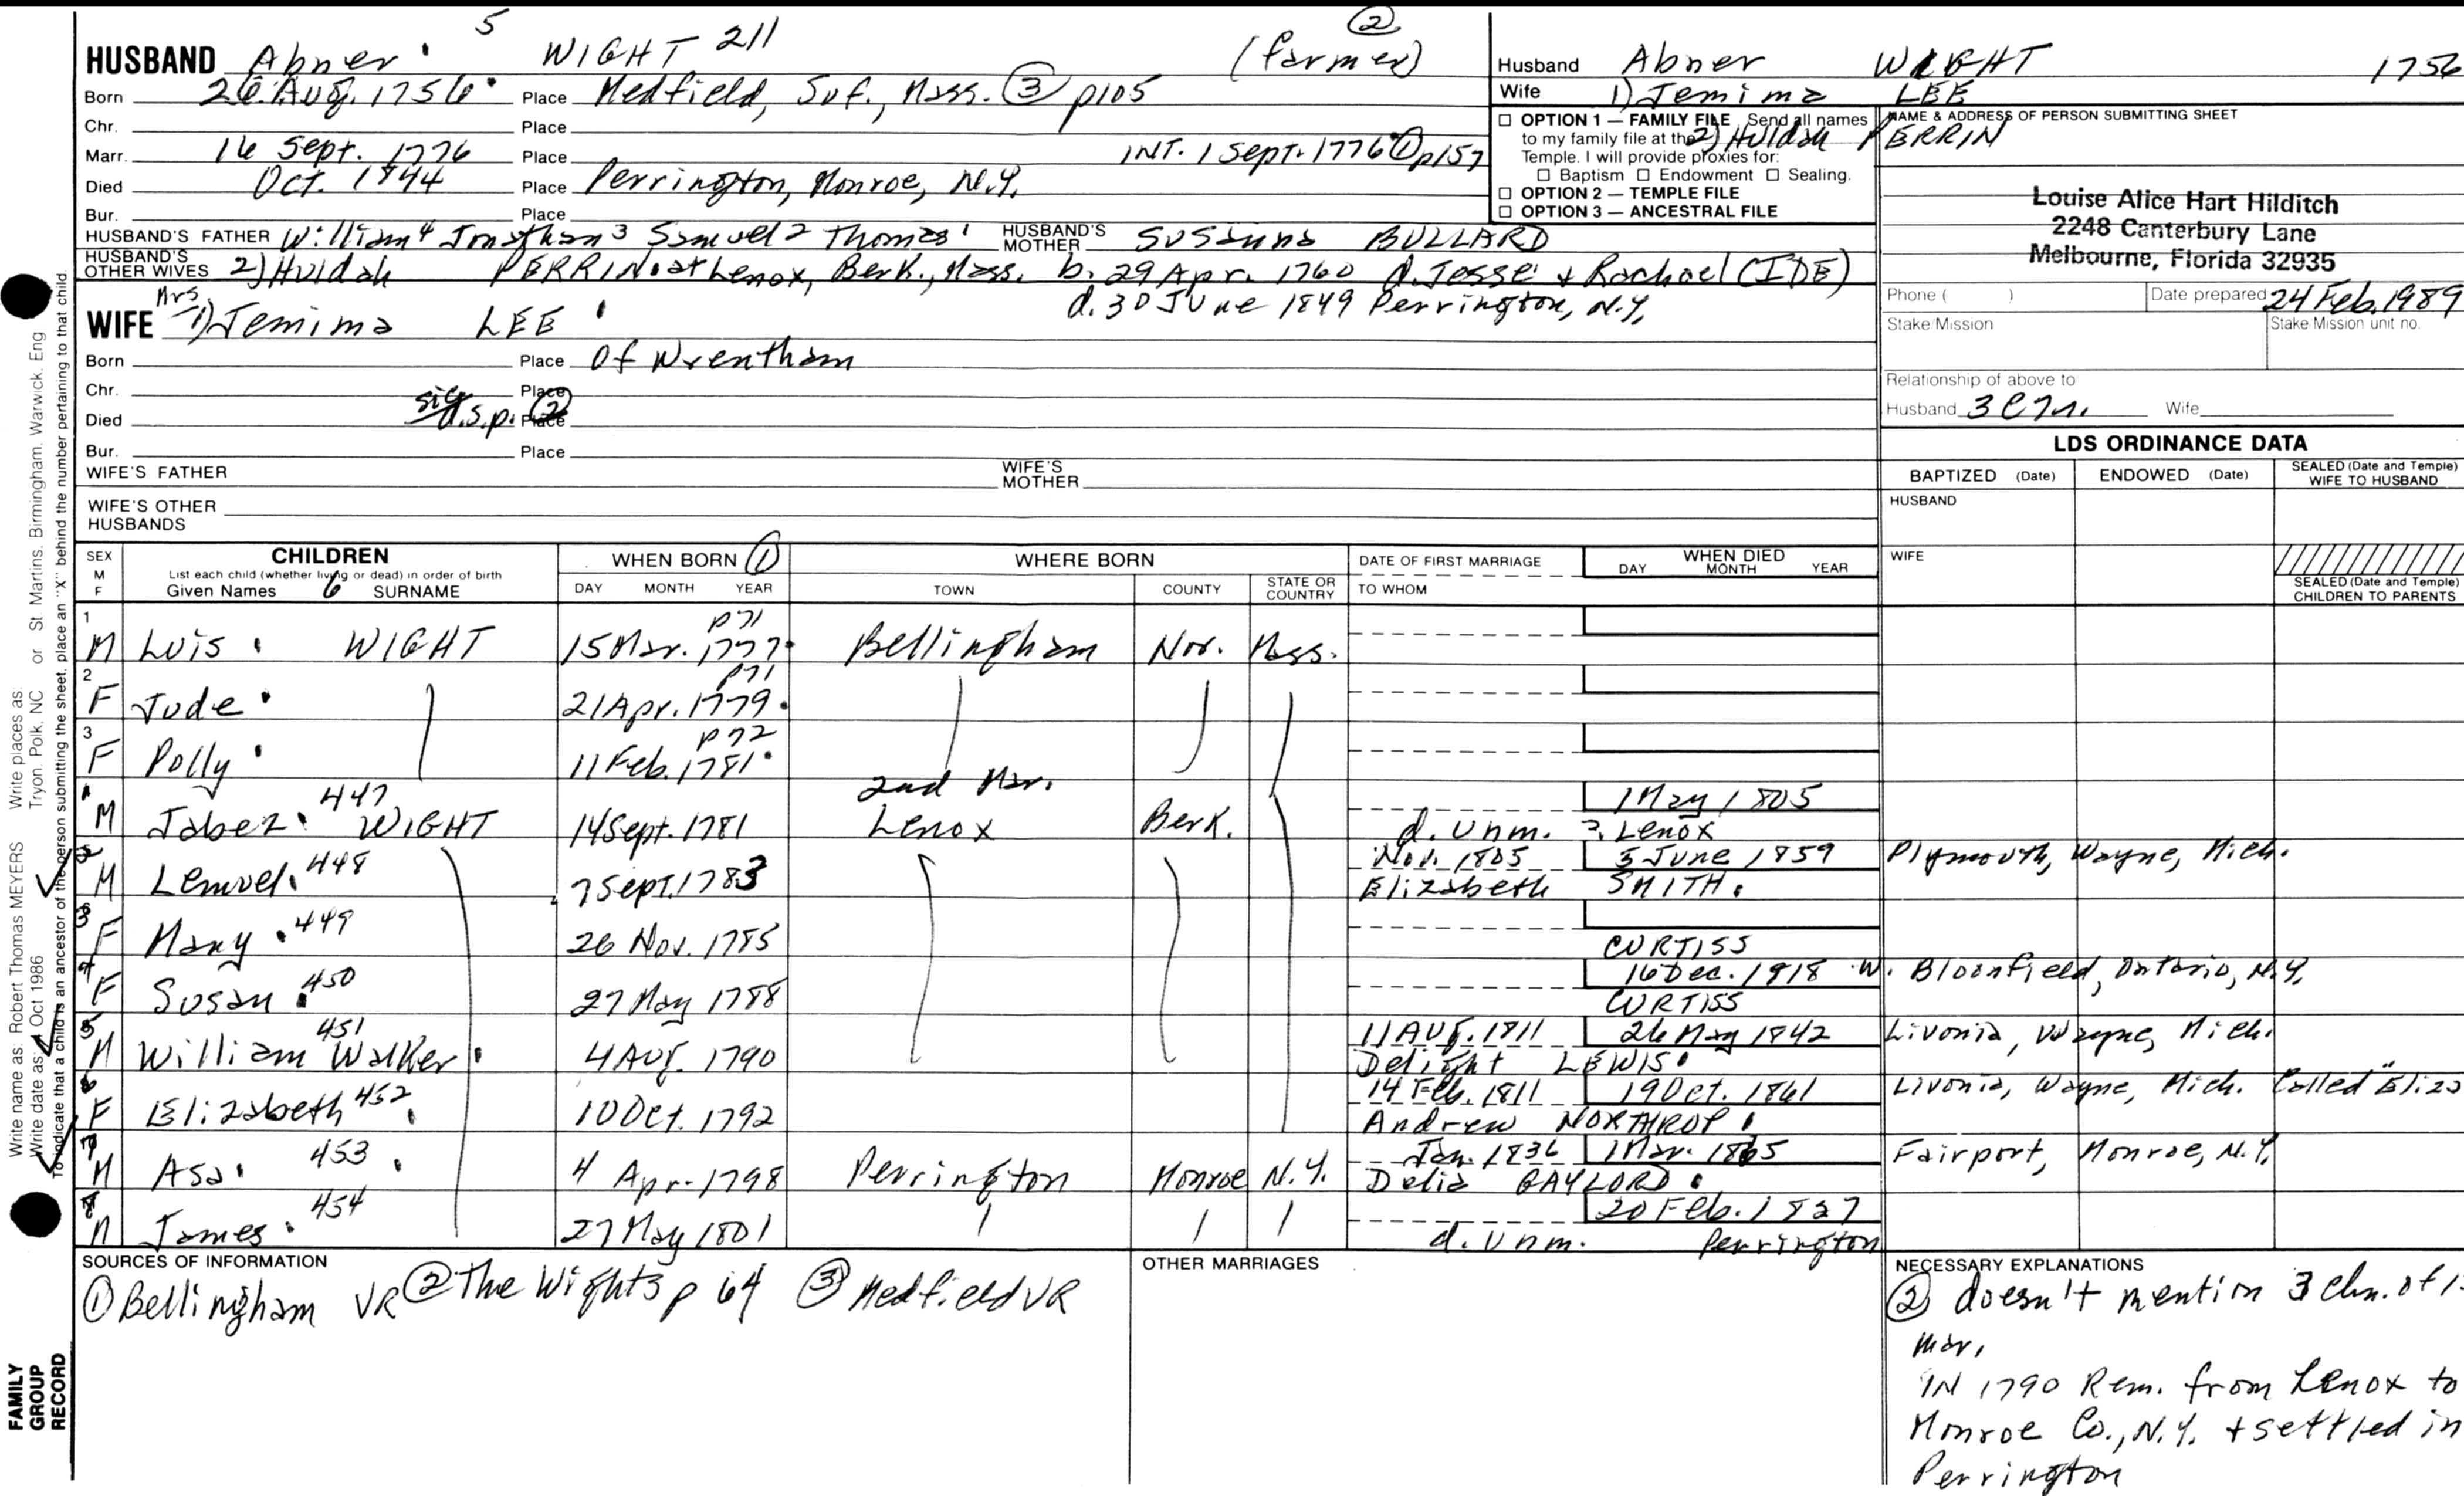 5 ②
HUSBAND Abner WIGHT 211 (farmer)
Born 26 Aug. 1756 Place Medfield, Suf., Mass. ③ p105
Chr. Place
Marr. 16 Sept. 1776 Place INT. 1 Sept. 1776 ① p157
Died Oct. 1844 Place Perrington, Monroe, N.Y.
Bur. Place
HUSBAND'S FATHER William 4 Jonathan 3 Samuel 2 Thomas 1 HUSBAND'S MOTHER Susanna BULLARD
HUSBAND'S OTHER WIVES 2) Huldah PERRIN at Lenox, Berk., Mass. b. 29 Apr. 1760 d. Jesse & Rachael (IDE)
d. 30 June 1849 Perrington, N.Y.
Mrs
WIFE 1) Jemima LEE
Born Place Of Wrentham
Chr. Place
Died d.s.p. ② Place
Bur. Place
WIFE'S FATHER WIFE'S MOTHER
WIFE'S OTHER HUSBANDS
Husband Abner WIGHT 1756
Wife 1) Jemima LEE
2) Huldah PERRIN
OPTION 1 — FAMILY FILE Send all names
to my family file at the
Temple. I will provide proxies for:
Baptism Endowment Sealing.
OPTION 2 — TEMPLE FILE
OPTION 3 — ANCESTRAL FILE
NAME & ADDRESS OF PERSON SUBMITTING SHEET
Louise Alice Hart Hilditch
2248 Canterbury Lane
Melbourne, Florida 32935
Phone ( ) Date prepared 24 Feb. 1989
Stake Mission Stake Mission unit no.
Relationship of above to
Husband Wife
LDS ORDINANCE DATA
BAPTIZED (Date) ENDOWED (Date) SEALED (Date and Temple) WIFE TO HUSBAND
HUSBAND
WIFE
SEALED (Date and Temple) CHILDREN TO PARENTS
SEX M F
CHILDREN
List each child (whether living or dead) in order of birth
Given Names 6 SURNAME
WHEN BORN ①
DAY MONTH YEAR
WHERE BORN
TOWN COUNTY STATE OR COUNTRY
DATE OF FIRST MARRIAGE
TO WHOM
WHEN DIED
DAY MONTH YEAR
p71
1 M Luis WIGHT 15 Mar. 1777 Bellingham Nor. Mass.
p71
2 F Jude 21 Apr. 1779
p72
3 F Polly 11 Feb. 1781
2nd Mar.
1 M Jabez 447 WIGHT 14 Sept. 1781 Lenox Berk. 1 May 1805
d. unm. Lenox
2 M Lemuel 448 7 Sept. 1783 Nov. 1805 5 June 1859 Plymouth, Wayne, Mich.
Elizabeth SMITH
3 F Mary 449 26 Nov. 1785
CURTISS
4 F Susan 450 27 May 1788 16 Dec. 1818 W. Bloomfield, Ontario, N.Y.
CURTISS
5 M William Walker 451 4 Aug. 1790 11 Aug. 1811 26 May 1842 Livonia, Wayne, Mich.
Delight LEWIS
6 F Elizabeth 452 10 Oct. 1792 14 Feb. 1811 19 Oct. 1861 Livonia, Wayne, Mich. Called "Eliza
Andrew NORTHROP
7 M Asa 453 4 Apr. 1798 Perrington Monroe N.Y. Jan. 1836 1 Mar. 1865 Fairport, Monroe, N.Y.
Delia GAYLORD
8 M James 454 27 May 1801 20 Feb. 1827
d. unm. Perrington
SOURCES OF INFORMATION
① Bellingham VR ② The Wights p 64 ③ Medfield VR
OTHER MARRIAGES
NECESSARY EXPLANATIONS
② doesn't mention 3 chn. of 1
mar.
IN 1790 Rem. from Lenox to
Monroe Co., N.Y. + settled in
Perrington
Write name as: Robert Thomas MEYERS Write places as: St Martins, Birmingham, Warwick, Eng
Write date as: 4 Oct 1986 Tryon, Polk, NC or
To indicate that a child is an ancestor of the person submitting the sheet, place an "X" behind the number pertaining to that child.
FAMILY
GROUP
RECORD